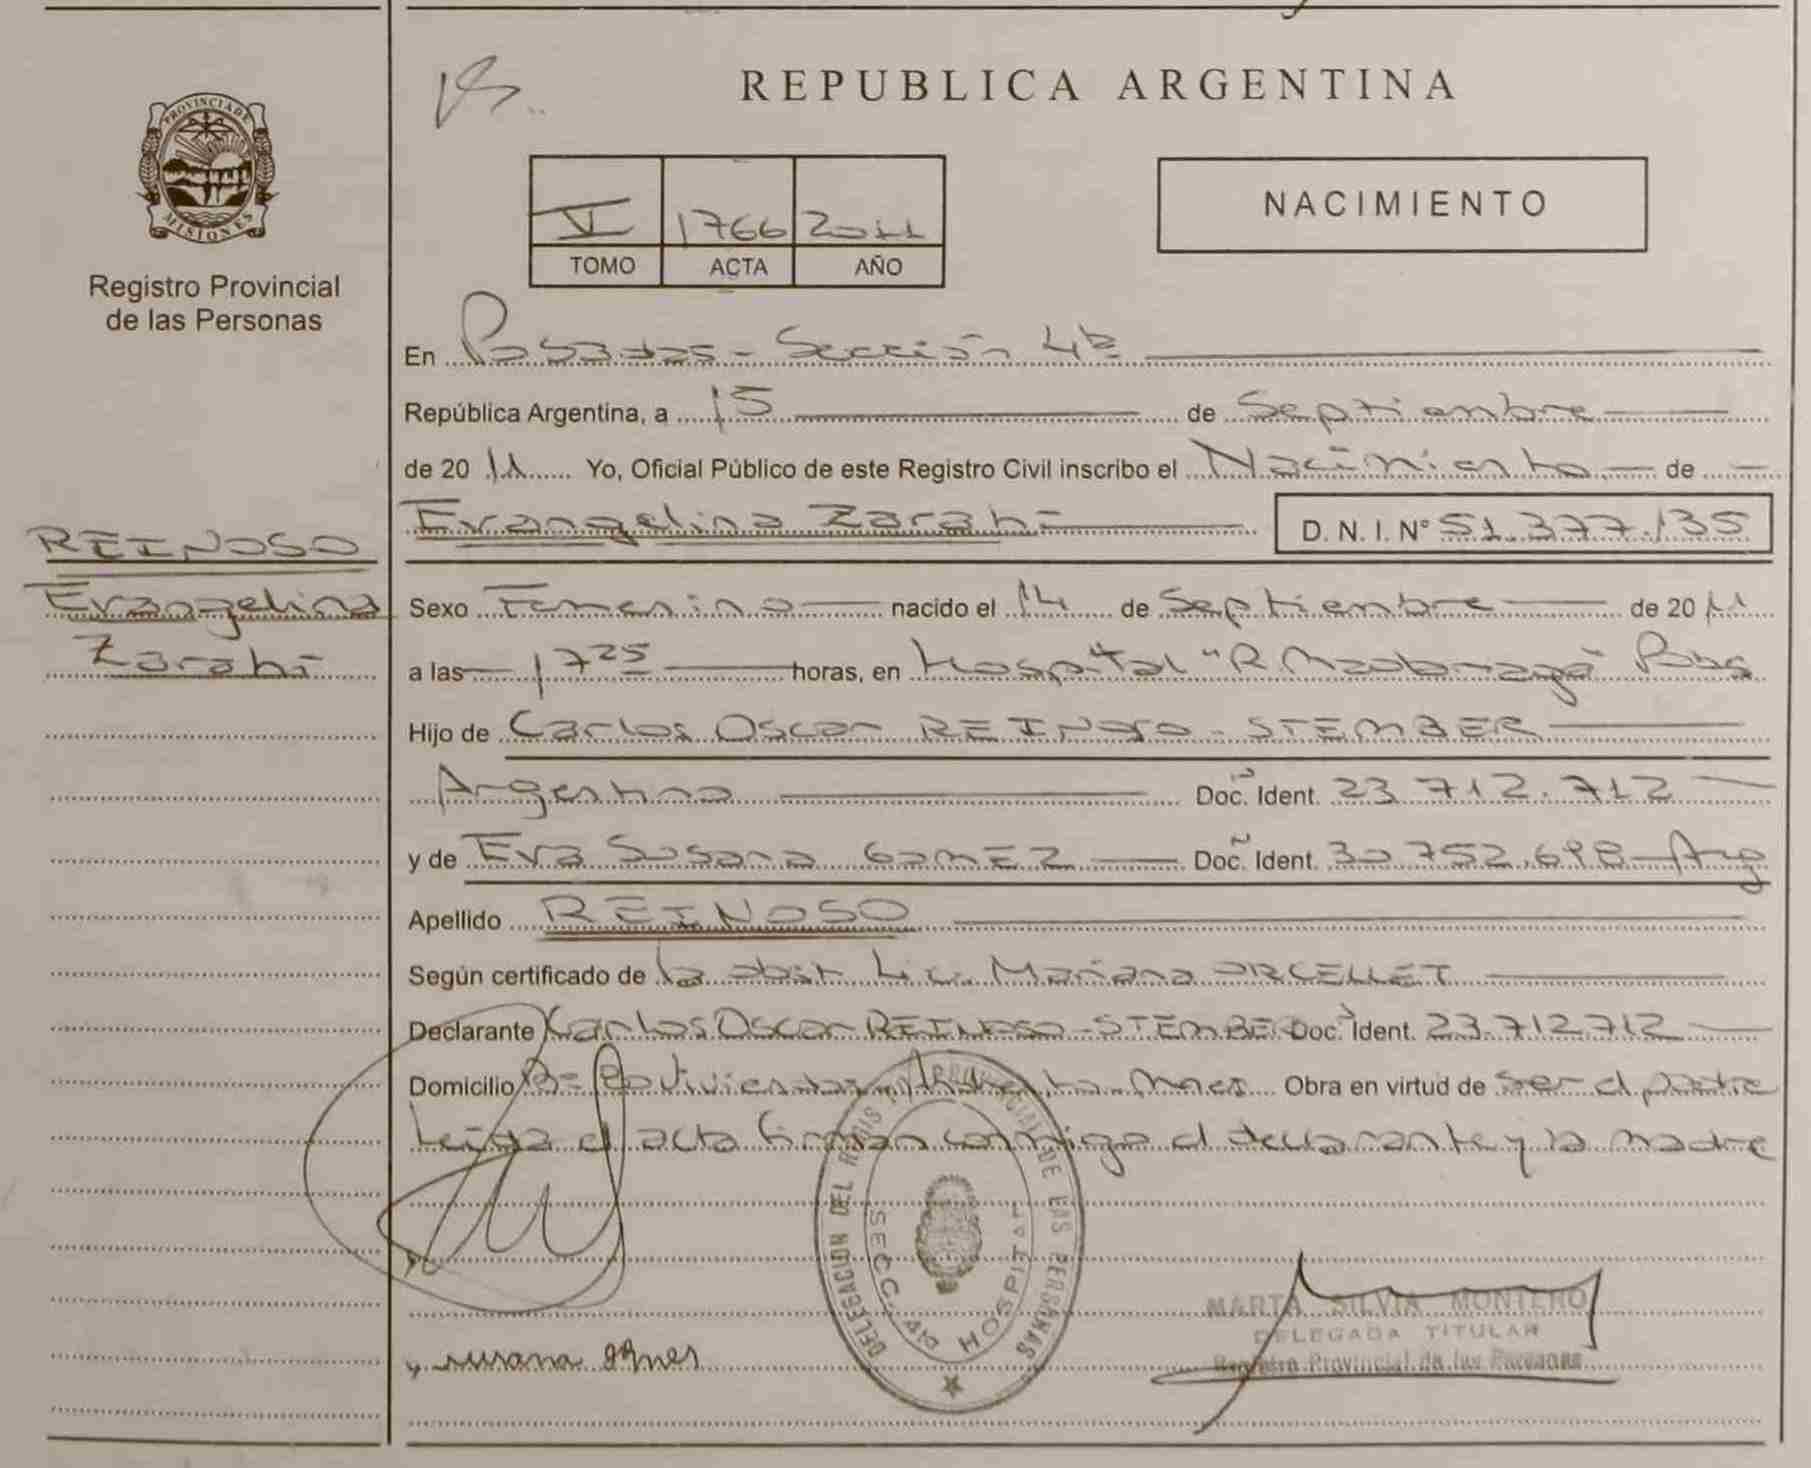 REPUBLICA ARGENTINA
PROVINCIA DE
MISIONES
Registro Provincial
de las Personas
V 1766 2011
TOMO ACTA AÑO
NACIMIENTO
En Posadas - Sección 4ta
República Argentina, a 15 de Septiembre
de 2011 Yo, Oficial Público de este Registro Civil inscribo el Nacimiento de
Evangelina Zarahí D. N. I. N° 51.377.135
REINOSO
Evangelina
Zarahí
Sexo Femenino nacido el 14 de Septiembre de 2011
a las 17 25 horas, en Hospital "R Madariaga" Pdas
Hijo de Carlos Oscar REINOSO - STEMBER
Argentino Doc. Ident. 23.712.712
y de Eva Susana GOMEZ Doc. Ident. 30.752.698 Arg
Apellido REINOSO
Según certificado de la obst. Lic. Mariana ORCELLET
Declarante Carlos Oscar REINOSO - STEMBER Doc. Ident. 23.712.712
Domicilio Viviendas Obra en virtud de ser el padre
Leída el acta firman conmigo el declarante y la madre
DELEGACION DEL REGISTRO PROVINCIAL DE LAS PERSONAS
SECC. HOSPITAL
MARTA SILVIA MONTERO
DELEGADA TITULAR
Registro Provincial de las Personas